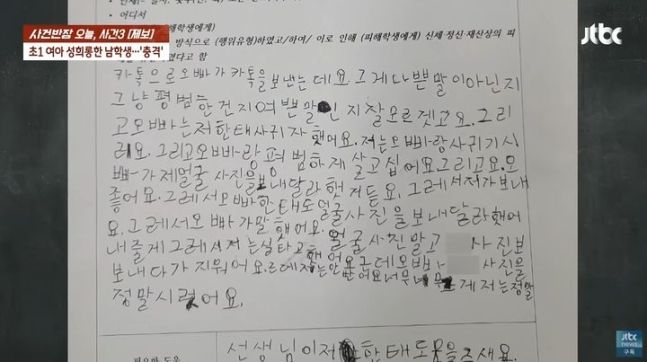 • 어디서
사건반장 오늘, 사건3 [제보]
jtbc
초1 여아 성희롱한 남학생…'충격'
방식으로 (행위유형)하였고/하여/ 이로 인해 (피해학생에게) 신체·정신·재산상의 피
카톡으로 오빠가 카톡을 보냈는데요. 그게 나쁜 말이 아닌지
그냥 평범한 건지 여쁜 말인지 잘 모르겟고요. 그리
고 오빠는 저한태 사귀자 했어요. 저는 오빠랑 사귀기 시
러요. 그리고 오빠랑 평범하게 살고 십어요 그리고요. 오
빠가 제 얼굴 사진을 보내달라 햇거든요. 그레서 저가 보내
좋어요. 그레서 오빠한태도 얼굴 사진을 보내달라 했어
요. 그레서 오빠가 말했어요. 얼굴 사진 말고 사진 보
내줄게 그레서 저는 실타고 했어요 근데 오빠 사진을
보내다가 지워어요. 저는 정말
정말 시렀어요.
선생님이 저한태 도움을 즈세요
jtbc
news
구독